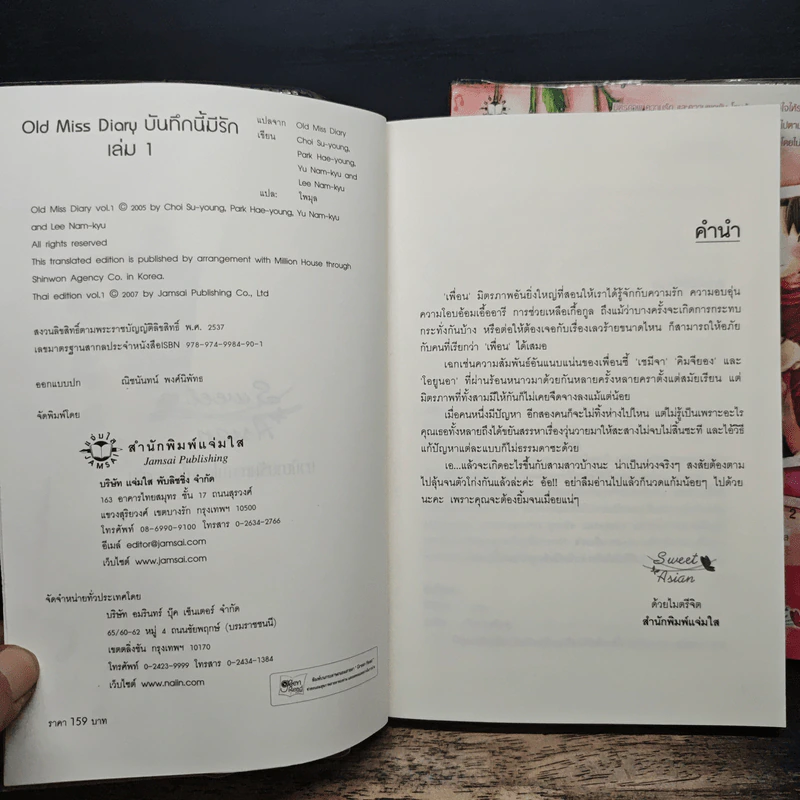 Old Miss Diary บันทึกนี้มีรัก
เล่ม 1
แปลจาก Old Miss Diary
เขียน Choi Su-young,
Park Hae-young,
Yu Nam-kyu and
Lee Nam-kyu
แปล: ไพมุล
Old Miss Diary vol.1 © 2005 by Choi Su-young, Park Hae-young, Yu Nam-kyu
and Lee Nam-kyu
All rights reserved
This translated edition is published by arrangement with Million House through
Shinwon Agency Co. in Korea.
Thai edition vol.1 © 2007 by Jamsai Publishing Co., Ltd
สงวนลิขสิทธิ์ตามพระราชบัญญัติลิขสิทธิ์ พ.ศ. 2537
เลขมาตรฐานสากลประจำหนังสือISBN 978-974-9984-90-1
ออกแบบปก ณิชนันทน์ พงศ์นิพัทธ
จัดพิมพ์โดย
แจ่มใส
JAMSAI
สำนักพิมพ์แจ่มใส
Jamsai Publishing
บริษัท แจ่มใส พับลิชชิ่ง จำกัด
163 อาคารไทยสมุทร ชั้น 17 ถนนสุรวงศ์
แขวงสุริยวงศ์ เขตบางรัก กรุงเทพฯ 10500
โทรศัพท์ 08-6990-9100 โทรสาร 0-2634-2766
อีเมล์ editor@jamsai.com
เว็บไซต์ www.jamsai.com
จัดจำหน่ายทั่วประเทศโดย
บริษัท อมรินทร์ บุ๊ค เซ็นเตอร์ จำกัด
65/60-62 หมู่ 4 ถนนชัยพฤกษ์ (บรมราชชนนี)
เขตตลิ่งชัน กรุงเทพฯ 10170
โทรศัพท์ 0-2423-9999 โทรสาร 0-2434-1384
เว็บไซต์ www.naiin.com
ราคา 159 บาท
คำนำ
'เพื่อน' มิตรภาพอันยิ่งใหญ่ที่สอนให้เราได้รู้จักกับความรัก ความอบอุ่น
ความโอบอ้อมเอื้ออารี การช่วยเหลือเกื้อกูล ถึงแม้ว่าบางครั้งจะเกิดการกระทบ
กระทั่งกันบ้าง หรือต่อให้ต้องเจอกับเรื่องเลวร้ายขนาดไหน ก็สามารถให้อภัย
กับคนที่เรียกว่า 'เพื่อน' ได้เสมอ
เฉกเช่นความสัมพันธ์อันแนบแน่นของเพื่อนซี้ 'เชมีจา' 'คิมจียอง' และ
'โอยูนอา' ที่ผ่านร้อนหนาวมาด้วยกันหลายครั้งหลายคราตั้งแต่สมัยเรียน แต่
มิตรภาพที่ทั้งสามมีให้กันก็ไม่เคยจืดจางลงแม้แต่น้อย
เมื่อคนหนึ่งมีปัญหา อีกสองคนก็จะไม่ทิ้งห่างไปไหน แต่ไม่รู้เป็นเพราะอะไร
คุณเธอทั้งหลายถึงได้ขยันสรรหาเรื่องวุ่นวายมาให้สะสางไม่จบไม่สิ้นซะที และไอ้วิธี
แก้ปัญหาแต่ละแบบก็ไม่ธรรมดาซะด้วย
เอ...แล้วจะเกิดอะไรขึ้นกับสามสาวบ้างนะ น่าเป็นห่วงจริงๆ สงสัยต้องตาม
ไปลุ้นจนตัวโก่งกันแล้วล่ะค่ะ อ้อ!! อย่าลืมอ่านไปแล้วก็นวดแก้มน้อยๆ ไปด้วย
นะคะ เพราะคุณจะต้องยิ้มจนเมื่อยแน่ๆ
Sweet
Asian
ด้วยไมตรีจิต
สำนักพิมพ์แจ่มใส
2